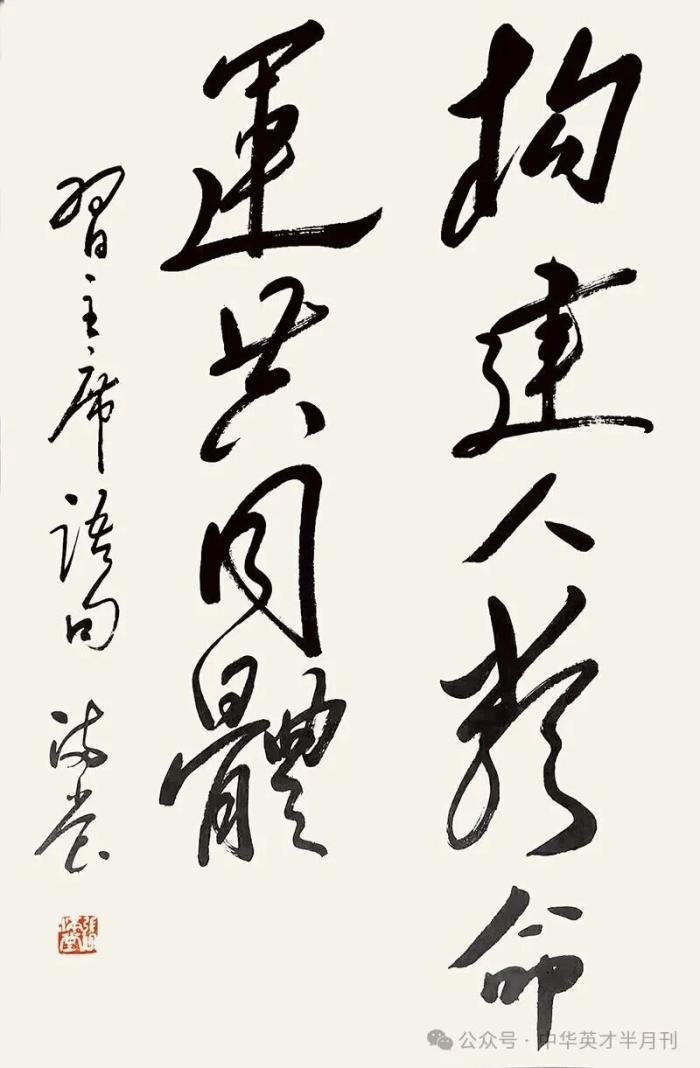 构建人類命
運共同體
習主席語句 海棠
公众号·中华英才半月刊